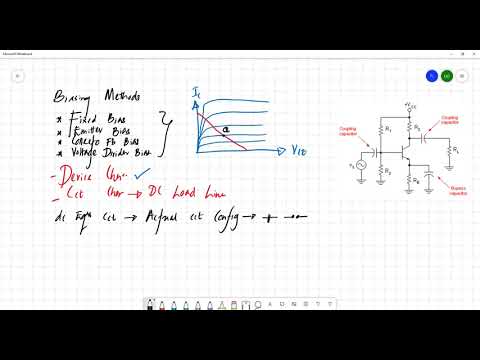 Microsoft Whiteboard
Biasing Methods
* Fixed Bias
* Emitter Bias
* Collector Fb Bias
* Voltage Divider Bias
- Device Char ✓
- Cct Char → DC Load Line
dc Eqn Cct → Actual cct Config →
Ic
Q
VCE
+VCC
R1
RC
Coupling capacitor
Coupling capacitor
RL
vs
R2
RE
Bypass capacitor